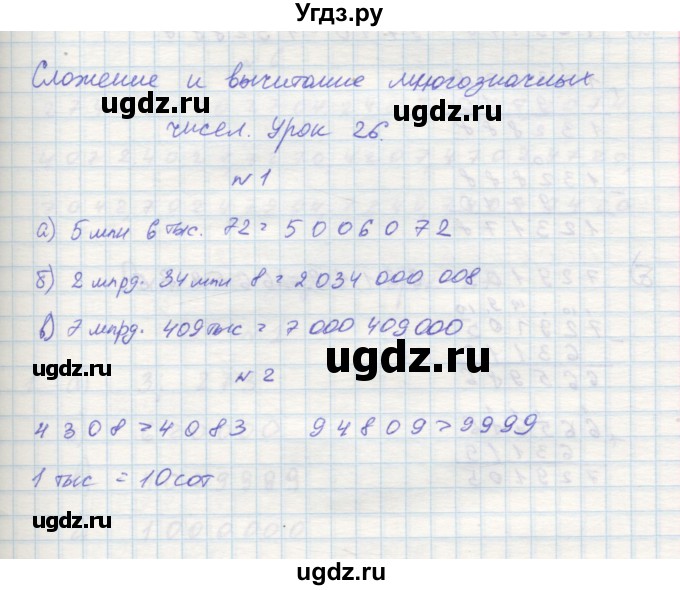 Угдз.ру
Сложение и вычитание многозначных
ugdz.ru ugdz.ru
чисел. Урок 26.
№ 1
а) 5 млн 6 тыс. 72 = 5 006 072
б) 2 млрд. 34 млн 8 = 2 034 000 008
в) 7 млрд. 409 тыс = 7 000 409 000
ugdz.ru ugdz.ru
№ 2
4308 > 4083 94809 > 9999
1 тыс = 10 сот
ugdz.ru ugdz.ru
ugdz.ru